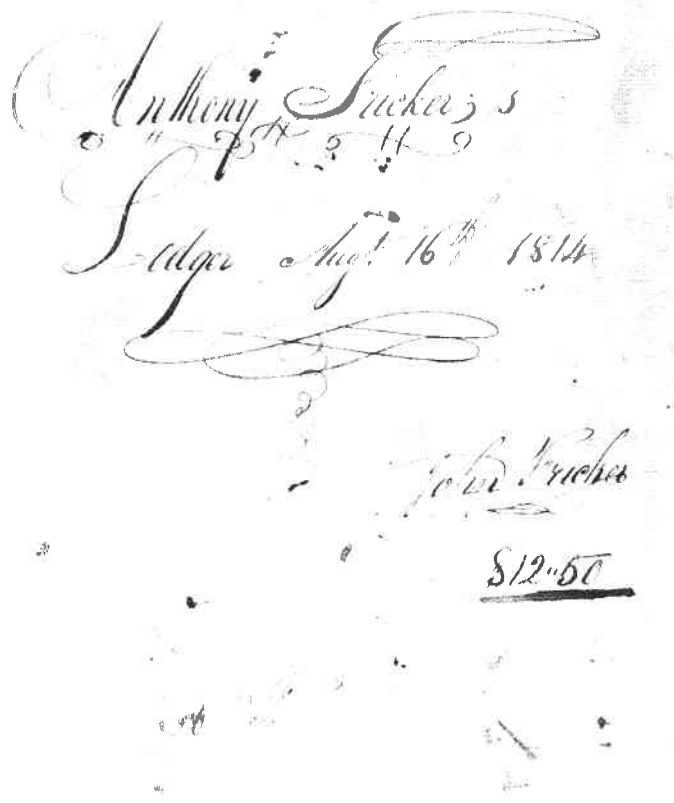 Anthony Fricker's
Ledger Augt. 16th 1814
John Fricker
$12"50